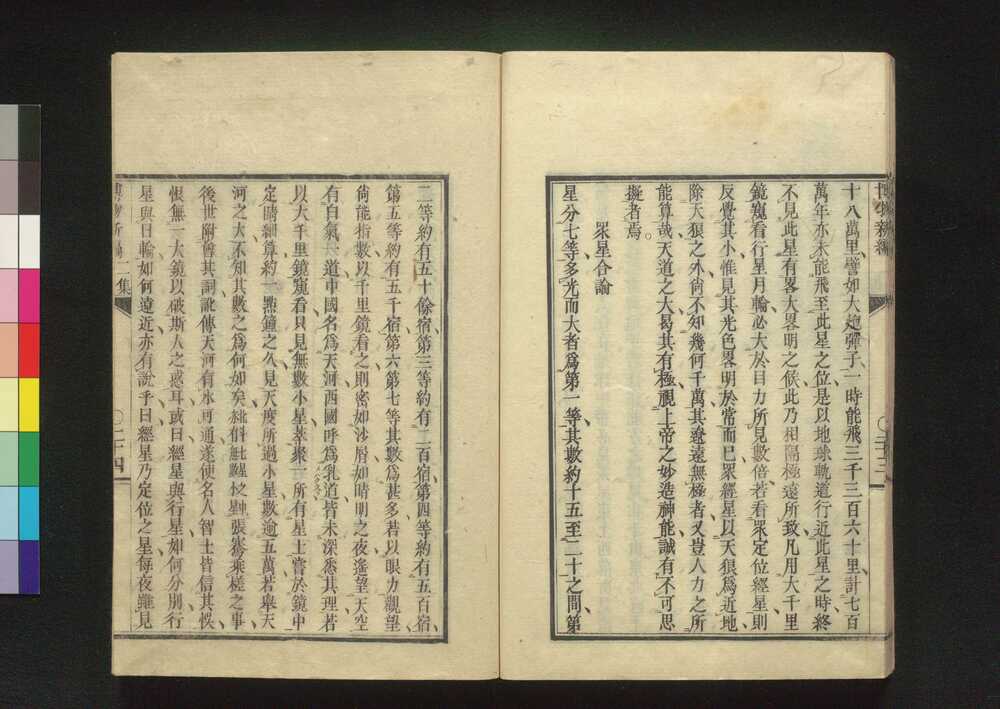 博物新編
十八萬里、譬如大炮彈子、一時能飛三千三百六十里、計七百
萬年、亦未能飛至此星之位、是以地球軌道行近此星之時、終
不見此星有畧大畧明之候、此乃相隔極遠所致、凡用大千里
鏡窺看行星月輪、必大於目力所見數倍、若看眾定位經星、則
反覺其小、惟見其光色畧明於常而已、眾經星以天狼爲近地、
除天狼之外、尙不知幾何千萬、其遼遠無極者、又豈人力之所
能算哉、天道之大、曷其有極、覩上帝之妙造神能、誠有不可思
擬者焉。
眾星合論
星分七等、多光而大者爲第一等、其數約十五至二十之間、第
二等約有五十餘宿、第三等約有二百宿、第四等約有五百宿、
第五等約有五千宿、第六第七等、其數爲甚多、若以眼力觀望、
尙能指數、以千里鏡看之、則密如沙屑、如晴明之夜、遙望天空、
有白氣一道、中國名爲天河、西國呼爲乳道、皆未深悉其理、若
以大千里鏡窺看、只見無數小星、萃聚一所、有星士嘗於鏡中
定睛細算、約一點鐘之久、見天度所過小星、數逾五萬、若舉天
河之大、不知其數之爲何如矣、張騫乘槎之事、
後世附會其詞、訛傳天河有水可通、遂使名人智士、皆信其悞、
恨無一大鏡以破斯人之惑耳、或曰、經星與行星如何分別、行
星與日輪如何遠近、亦有說乎、曰、經星乃定位之星、每夜雖見
博物新編 二集
二十四